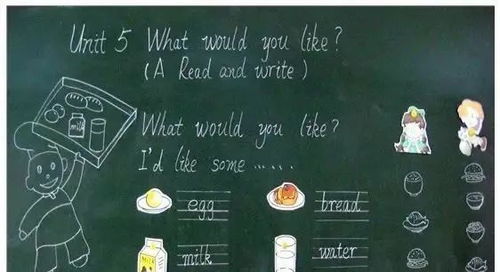 Unit 5 What would you like?
(A Read and write)
What would you like?
I'd like some ......
egg bread
milk water
milk